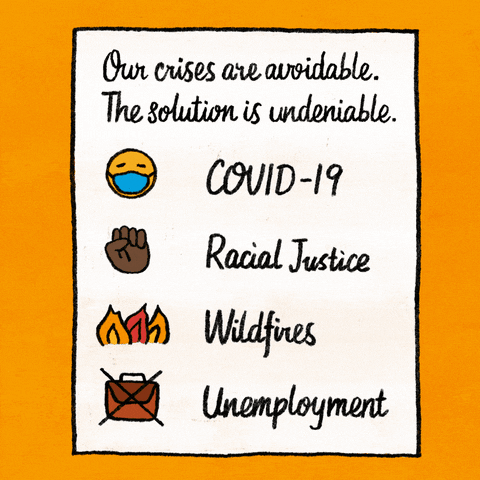 Our crises are avoidable.
The solution is undeniable.
COVID-19
Racial Justice
Wildfires
Unemployment